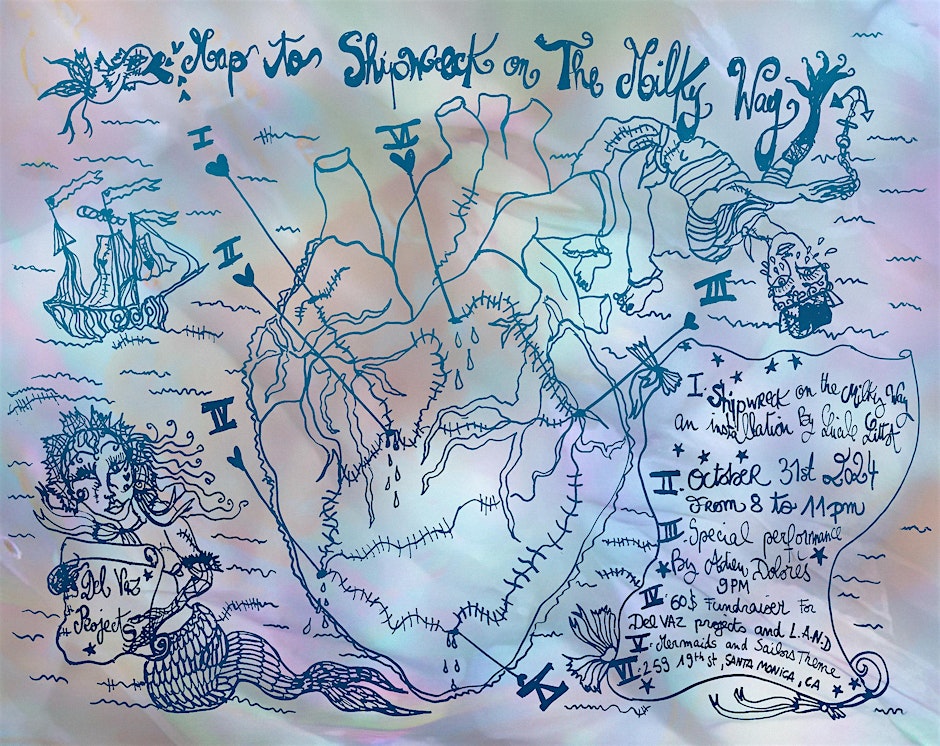 Map to Shipwreck on The Milky Way
I
VI
II
III
IV
V
Del Vaz
Projects
I. Shipwreck on the Milky Way
an installation By
II. October 31st 2024
From 8 to 11pm
III. Special performance
By Dolores
9PM
IV. 60$ Fundraiser For
Del VAZ projects and L.A.N.D
V. Mermaids and Sailors Theme
VI. 259 19th st, SANTA MONICA, CA